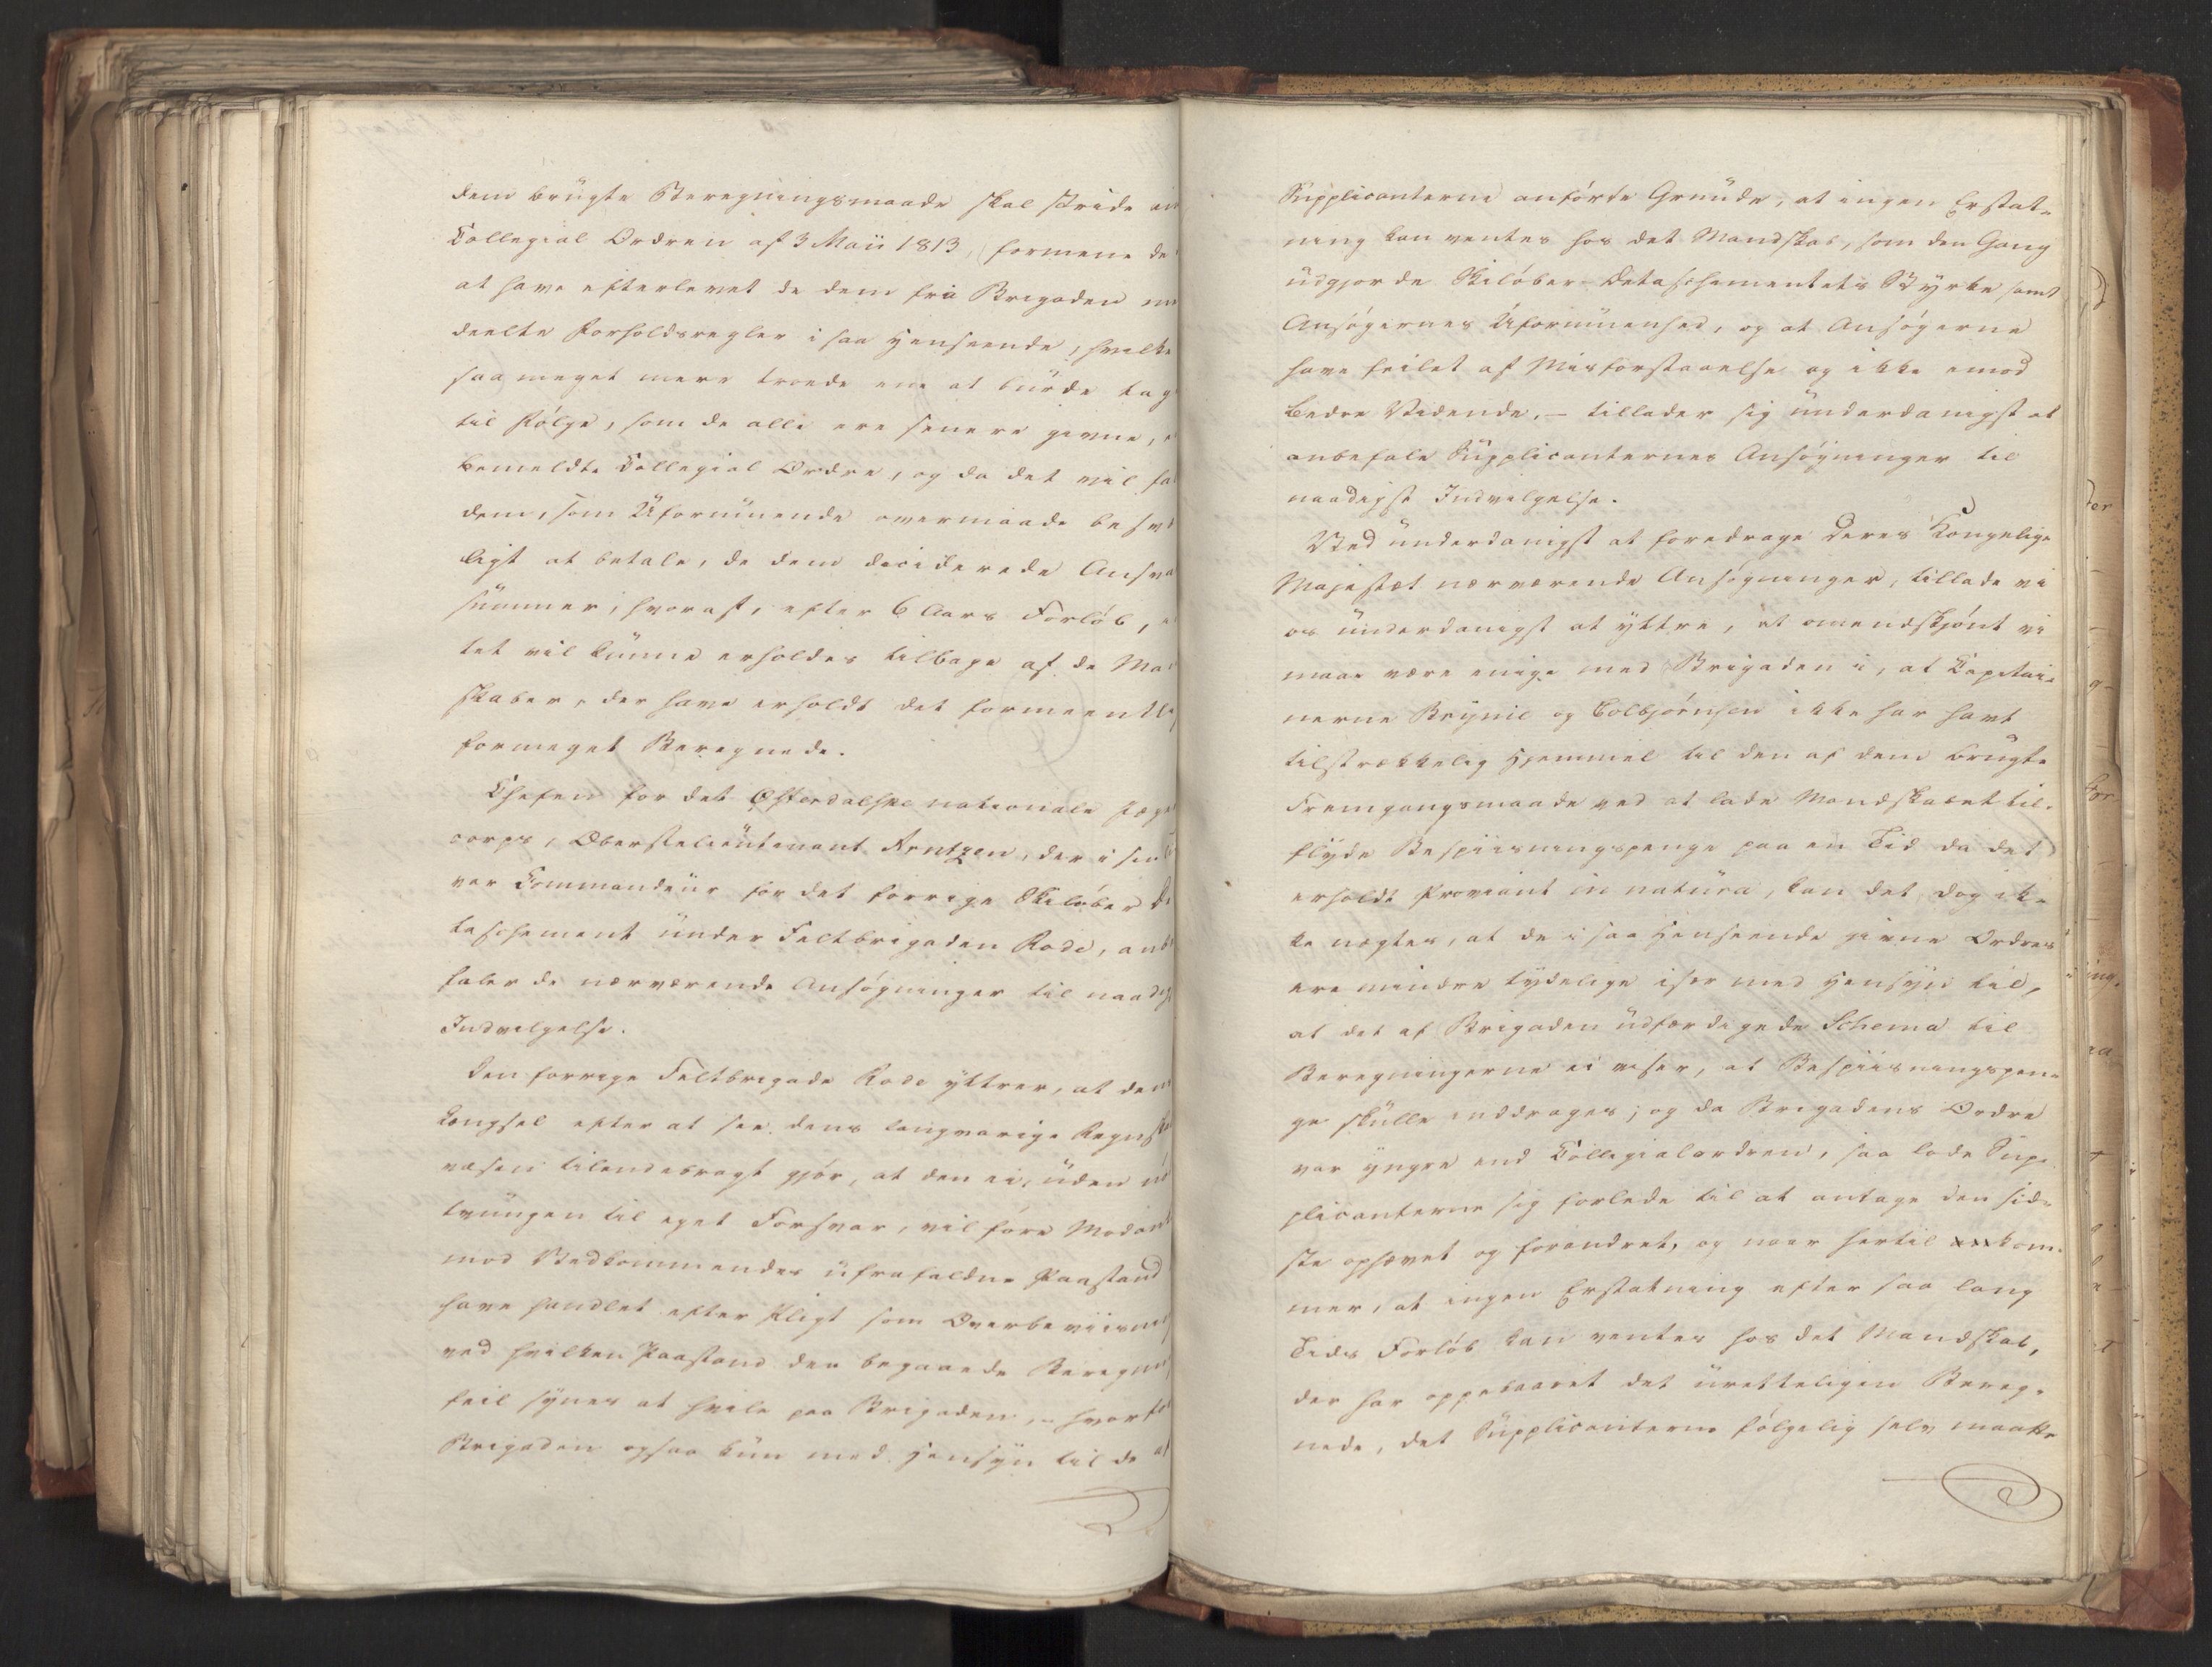 dem brugte Beregningsmaade skal stride
Collegial Ordren af 3 Maii 1813, formene de
at have efterlevet de dem fra Brigaden
deelte Forholdsregler i saa Henseende, hvilke
saa meget mere troede ene at burde tag
til Følge, som de alle ere senere givne,
bemeldte Collegial Ordre, og da det vil fal
dem, som Uformuende overmaade besvær
ligt at betale, de dem deciderede Ansvar
summer, hvoraf, efter 6 Aars Forløb,
tet vil kunne erholdes tilbage af de Man
skaber, der have erholdt det formeentlig
formeget Beregnede.
Chefen for det Østerdalske nationale Jæger
corps, Oberstelieutenant Arntzen, der i sin
var Commandeur for det forrige Skiløber De
taschement under Feltbrigaden Rode, anbe
faler de nærværende Ansøgninger til naadigst
Indvilgelse.
Den forrige Feltbrigade Rode yttrer, at dens
Længsel efter at see dens langvarige Regnskabs
væsen tilendebragt gjør, at den ei, uden
tvungen til eget Forsvar, vil føre Modant
mod Vedkommendes ufrafaldne Paastand
have handlet efter Pligt som Overbeviisning
ved hvilken Paastand den begaaede Beregnings
feil synes at hvile paa Brigaden, – hvorfor
Brigaden ogsaa kun med Hensyn til de af
Supplicanterne anførte Grunde, at ingen Erstat-
ning kan ventes hos det Mandskab, som den Gang
udgjorde Skiløber-Detaschementets Styrke samt
Ansøgernes Uformuenhed, og at Ansøgerne
have feilet af Misforstaaelse og ikke imod
bedre Vidende, – tillader sig underdanigst at
anbefale Supplicanternes Ansøgninger til
naadigst Indvilgelse.
Ved underdanigst at foredrage Deres Kongelige
Majestæt nærværende Ansøgninger, tillade vi
os underdanigst at yttre, at omendskjønt vi
maae være enige med Brigaden i, at Capitai-
nerne Brynie og Colbjørnsen ikke har havt
tilstrækkelig Hjemmel til den af dem brugte
Fremgangsmaade ved at lade Mandskabet til-
flyde Bespiisningspenge paa en Tid da det
erholdt Proviant in natura, kan det dog ik-
ke nægtes, at de i saa Henseende givne Ordres
ere mindre tydelige især med Hensyn til,
at det af Brigaden udfærdigede Schema til
Beregningerne ei viser, at Bespiisningspen-
ge skulle inddrages; og da Brigadens Ordre
var yngre end Collegialordren, saa lode Sup-
plicanterne sig forlede til at antage den sid-
ste ophævet og forandret, og naar hertil kom-
mer, at ingen Erstatning efter saa lang
Tids Forløb kan ventes hos det Mandskab,
der har oppebaaret det uretteligen Bereg-
nede, det Supplicanterne følgelig selv maatte